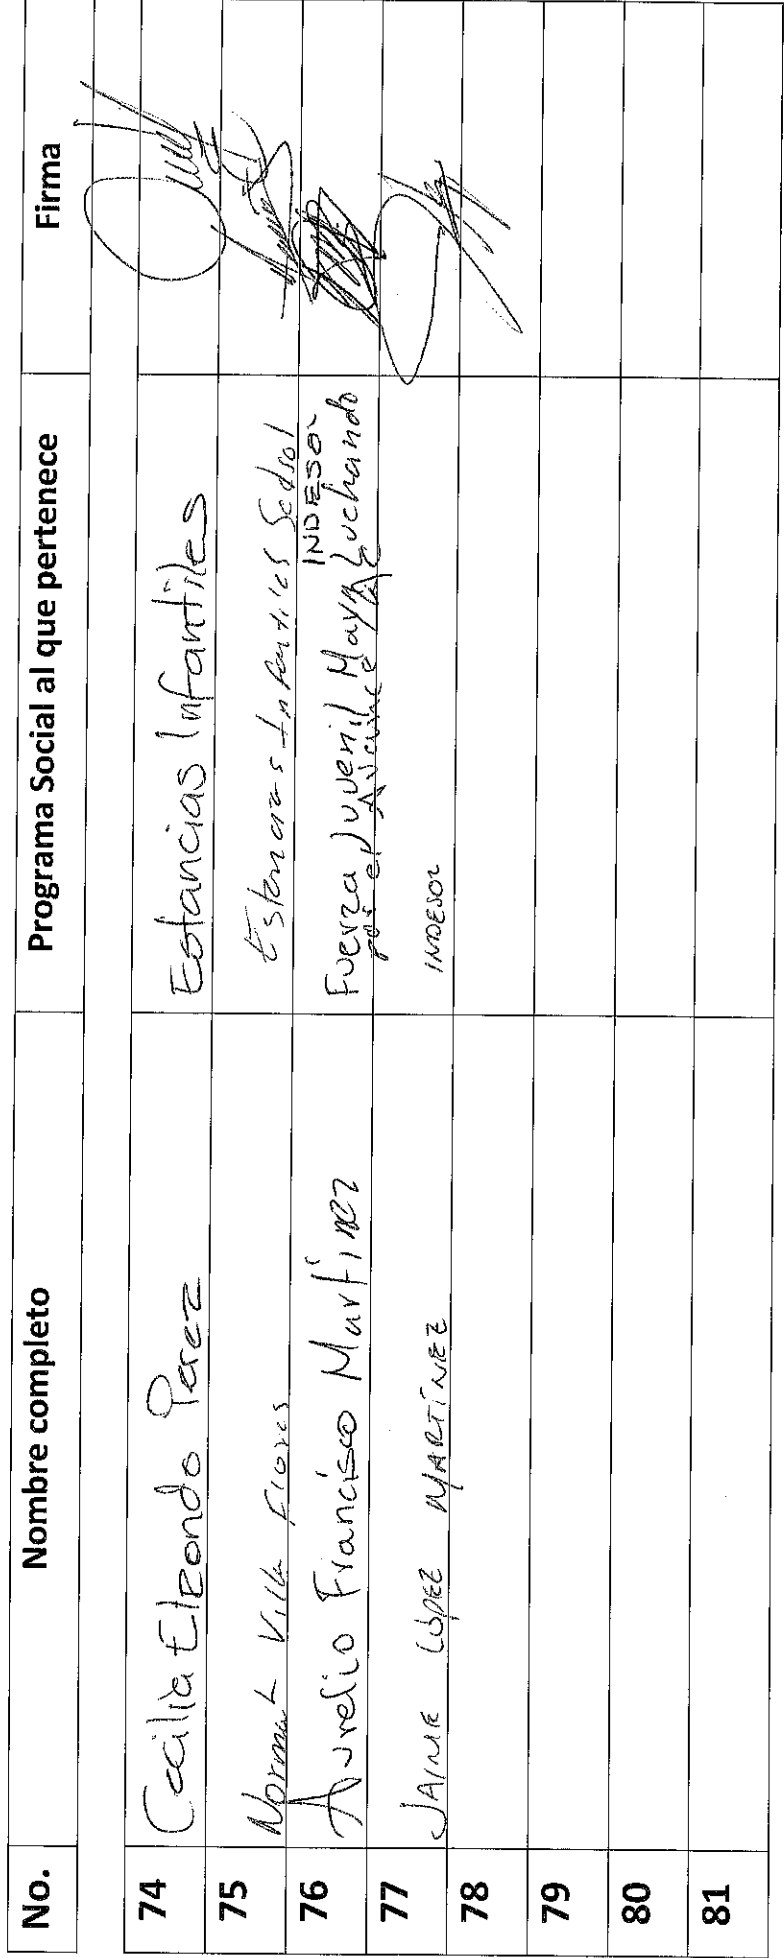 No. Nombre completo Programa Social al que pertenece Firma
74 Cecilia Elzondo Perez Estancias Infantiles
75 Norma L Villa Flores Estancias Infantiles Sedsol
76 Aurelio Francisco Martinez Fuerza Juvenil Maya Luchando INDESOL
por el
77 JAIME LÓPEZ MARTÍNEZ INDESOL
78
79
80
81